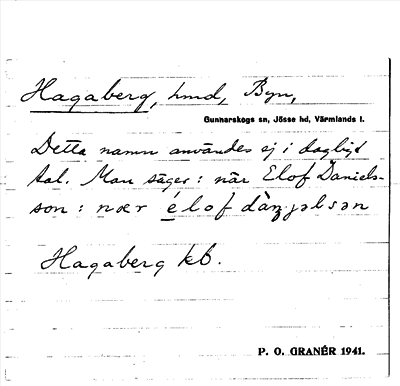 Hagaberg, hmd, Byn,
Gunnarskogs sn, Jösse hd, Värmlands l.
Detta namn användes ej i dagligt
tal. Man säger: när Elof Daniels-
son: nær élof dàn̦jəlsən
Hagaberg kb.
P. O. GRANÉR 1941.